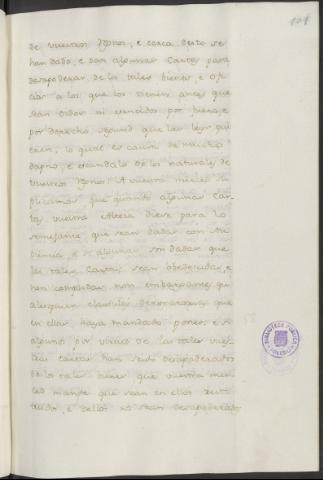 101
de vuestros Regnos, e cerca desto se
han dado, e dan algunas Cartas para
desapoderar de los tales bienes, e ofi
cios a los que los tienen antes que
sean oidos ni vencidos por fuero, e
por derecho segund que las leyes qui
eren, lo qual es causa de mucho
dapno, e escandalo de los naturales de
vuestros Regnos: A vuestra merced su
plicamos que quando algunas Car
tas vuestra Alteza diere para lo
semejante que sean dadas con Au
diencia, e si algunas son dadas que
las tales Cartas sean obedecidas, e
non complidas non embargante qua
lesquier clausulas derogatorias que
en ellas haya mandado poner: e si
algunos por virtud de las tales vues
tras cartas han seido desapoderados
de los tales bienes que vuestra mer
ced mande que sean en ellos resti
tuidos, e dellos no sean desapoderados
BIBLIOTECA PUBLICA
TOLEDO